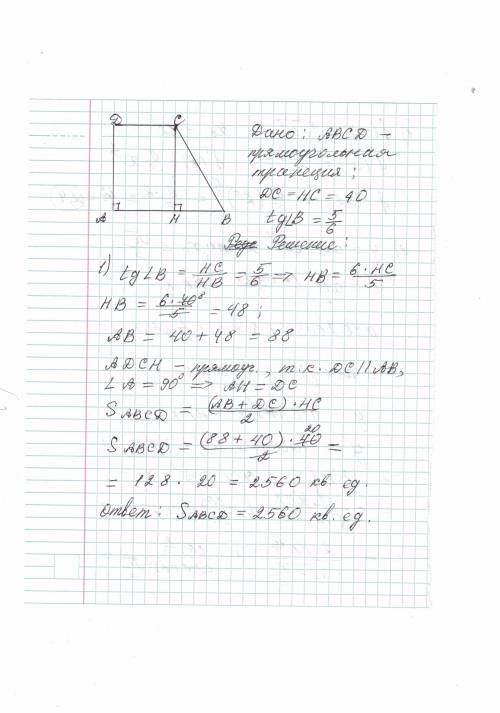 D C
A H B
Дано: ABCD –
прямоугольная
трапеция;
DC = HC = 40
tg∠B = 5/6
Решение:
1) tg∠B = HC/HB = 5/6 => HB = 6·HC/5
HB = 6·40⁸/5 = 48;
AB = 40 + 48 = 88
ADCH – прямоуг., т.к. DC || AB,
∠A = 90° => AH = DC
SABCD = (AB + DC)·HC/2
SABCD = (88 + 40)·40²⁰/2 =
= 128 · 20 = 2560 кв. ед.
Ответ: SABCD = 2560 кв. ед.